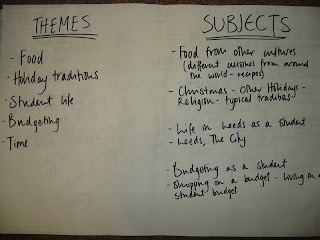 THEMES
- Food
- Holiday traditions
- Student life
- Budgeting
- Time
SUBJECTS
- Food from other cultures
(different cuisines from around
the world - recipes)
- Christmas - Other Holidays -
Religion - typical traditions
- Life in Leeds as a student
- Leeds, The City
- Budgeting as a student
- Shopping on a budget - living on a
student budget